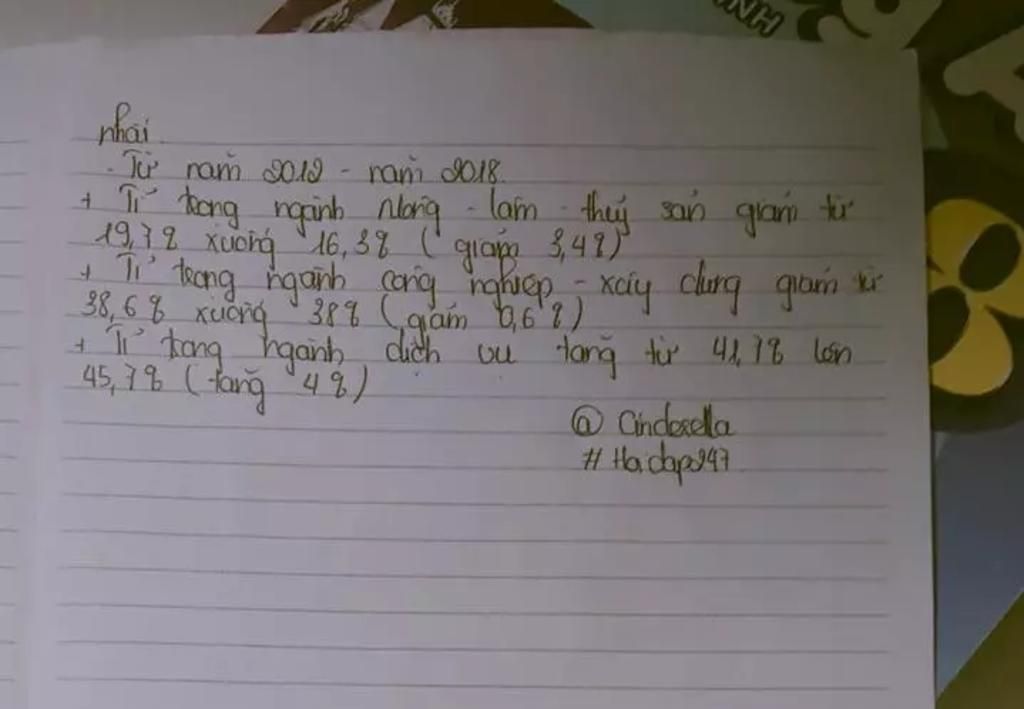 INH
nhai
- Từ năm 2012 - năm 2018
+ Tỉ trọng ngành Nông - lâm - thuỷ sản giảm từ
19,7% xuống 16,3% ( giảm 3,4%)
+ Tỉ trọng ngành công nghiệp - xây dựng giảm từ
38,6% xuống 38% (giảm 0,6%)
+ Tỉ trọng ngành dịch vụ tăng từ 41,7% lên
45,7% ( tăng 4%)
@ Cinderella
# Hoidap247